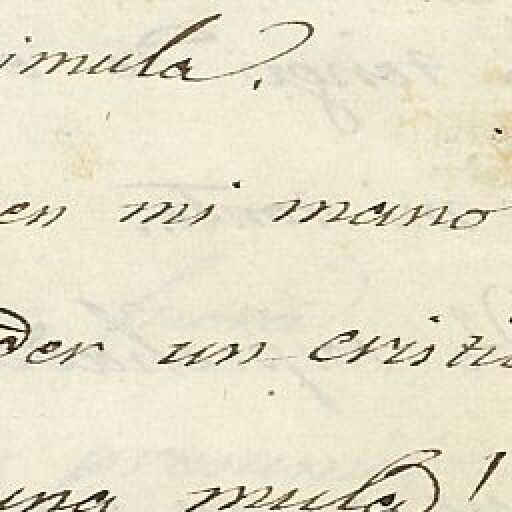 imula.
en mi mano
der un cristi
una mula!